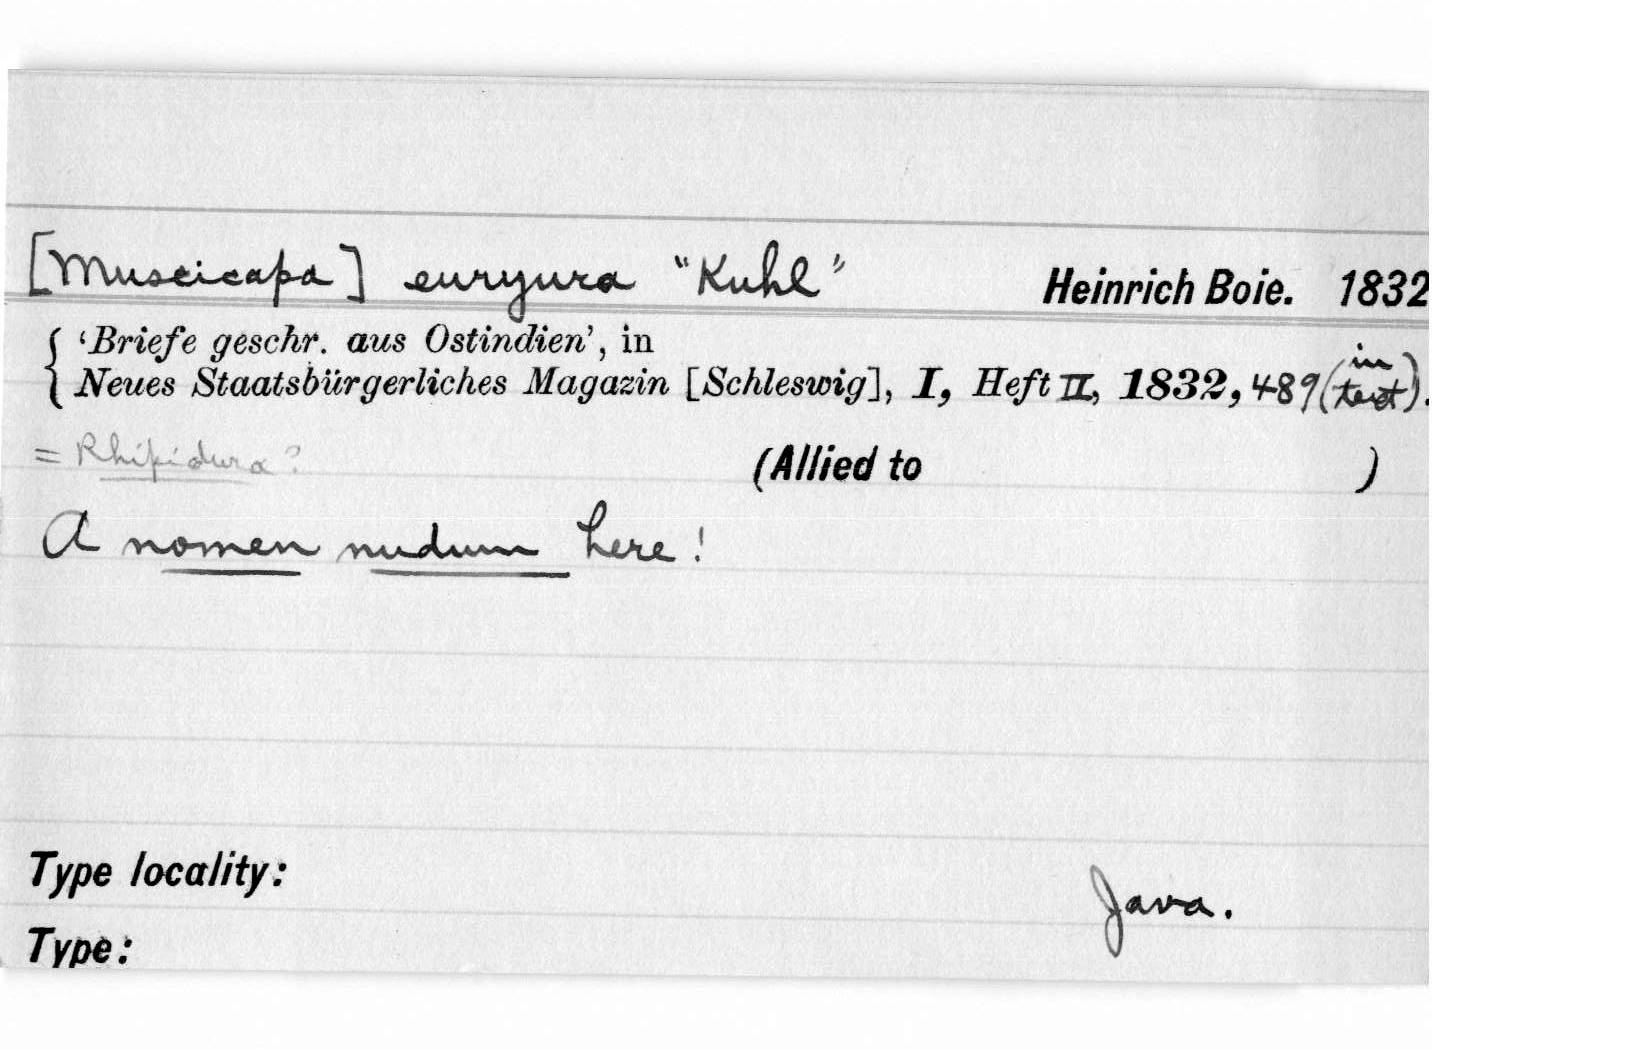 [Muscicapa] euryura "Kuhl" Heinrich Boie. 1832
'Briefe geschr. aus Ostindien', in
Neues Staatsbürgerliches Magazin [Schleswig], I, Heft II, 1832, 489 (in text).
= Rhipidura?
(Allied to )
A nomen nudum here!
Type locality: Java.
Type: